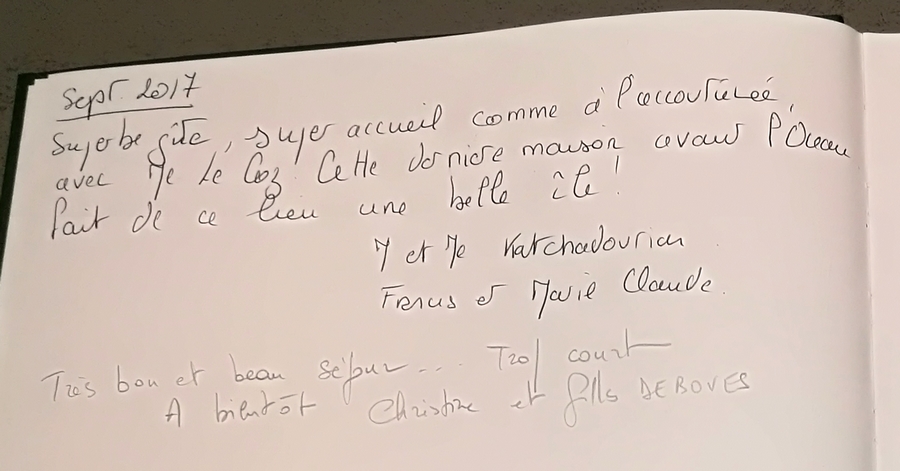 Sept. 2017
Superbe gîte, super accueil comme à l'accoutumée,
avec Me Le Coz! Cette dernière maison avant l'Océan
fait de ce lieu une belle île!
M et Me Katchadourian
et Marie Claude.
Très bon et beau séjour... Trop court
A bientôt Christine et Gilles DEBOVES